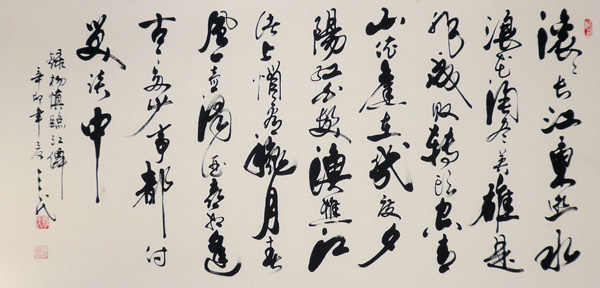 滚滚长江東逝水
浪花淘尽英雄是
非成败轉頭空青
山依舊在幾度夕
陽红白髮漁樵江
渚上惯看秋月春
風一壺濁酒喜相逢
古今多少事都付
笑谈中
錄杨慎臨江僊
辛卯年